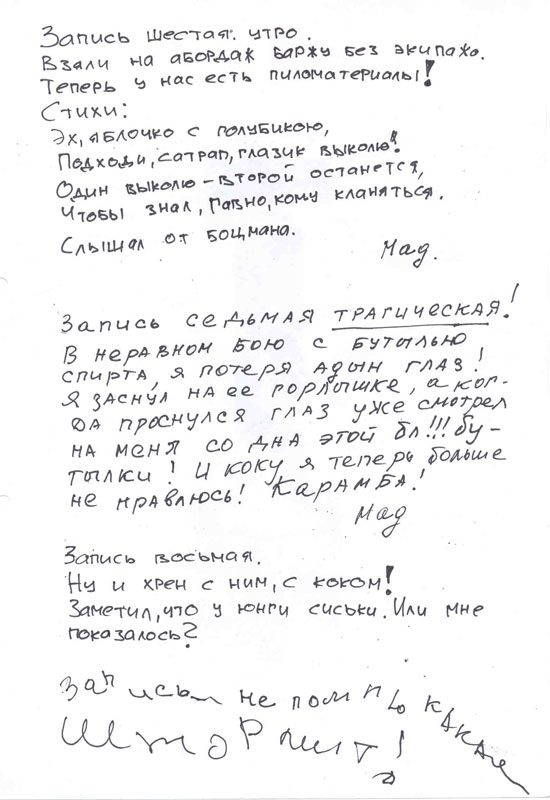 Запись шестая. утро.
Взяли на абордаж баржу без экипажа.
Теперь у нас есть пиломатериалы!
Стихи:
Эх, яблочко с голубикою,
Подходи, сатрап, глазик выколю!
Один выколю – второй останется,
Чтобы знал, гавно, кому кланяться.
Слышал от боцмана.
Мад.
Запись седьмая трагическая!
В неравном бою с бутылью
спирта, я потеря адын глаз!
Я заснул на ее горлышке, а ког-
да проснулся глаз уже смотрел
на меня со дна этой бл!!! бу-
тылки! И коку я теперь больше
не нравлюсь! Карамба!
Мад
Запись восьмая.
Ну и хрен с ним, с коком!
Заметил, что у юнги сиськи. Или мне
показалось?
Запись не помню какая
Штормит!